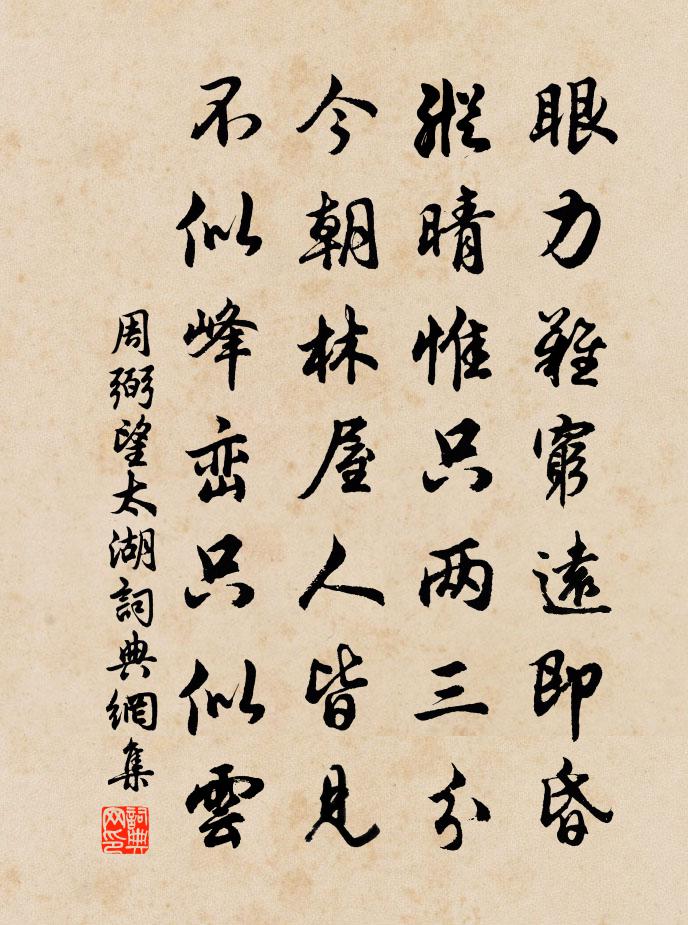 眼力難窮遠即昏
縱晴惟只两三分
今朝林屋人皆見
不似峰巒只似雲
周弼望太湖詞典網集
詞典网印